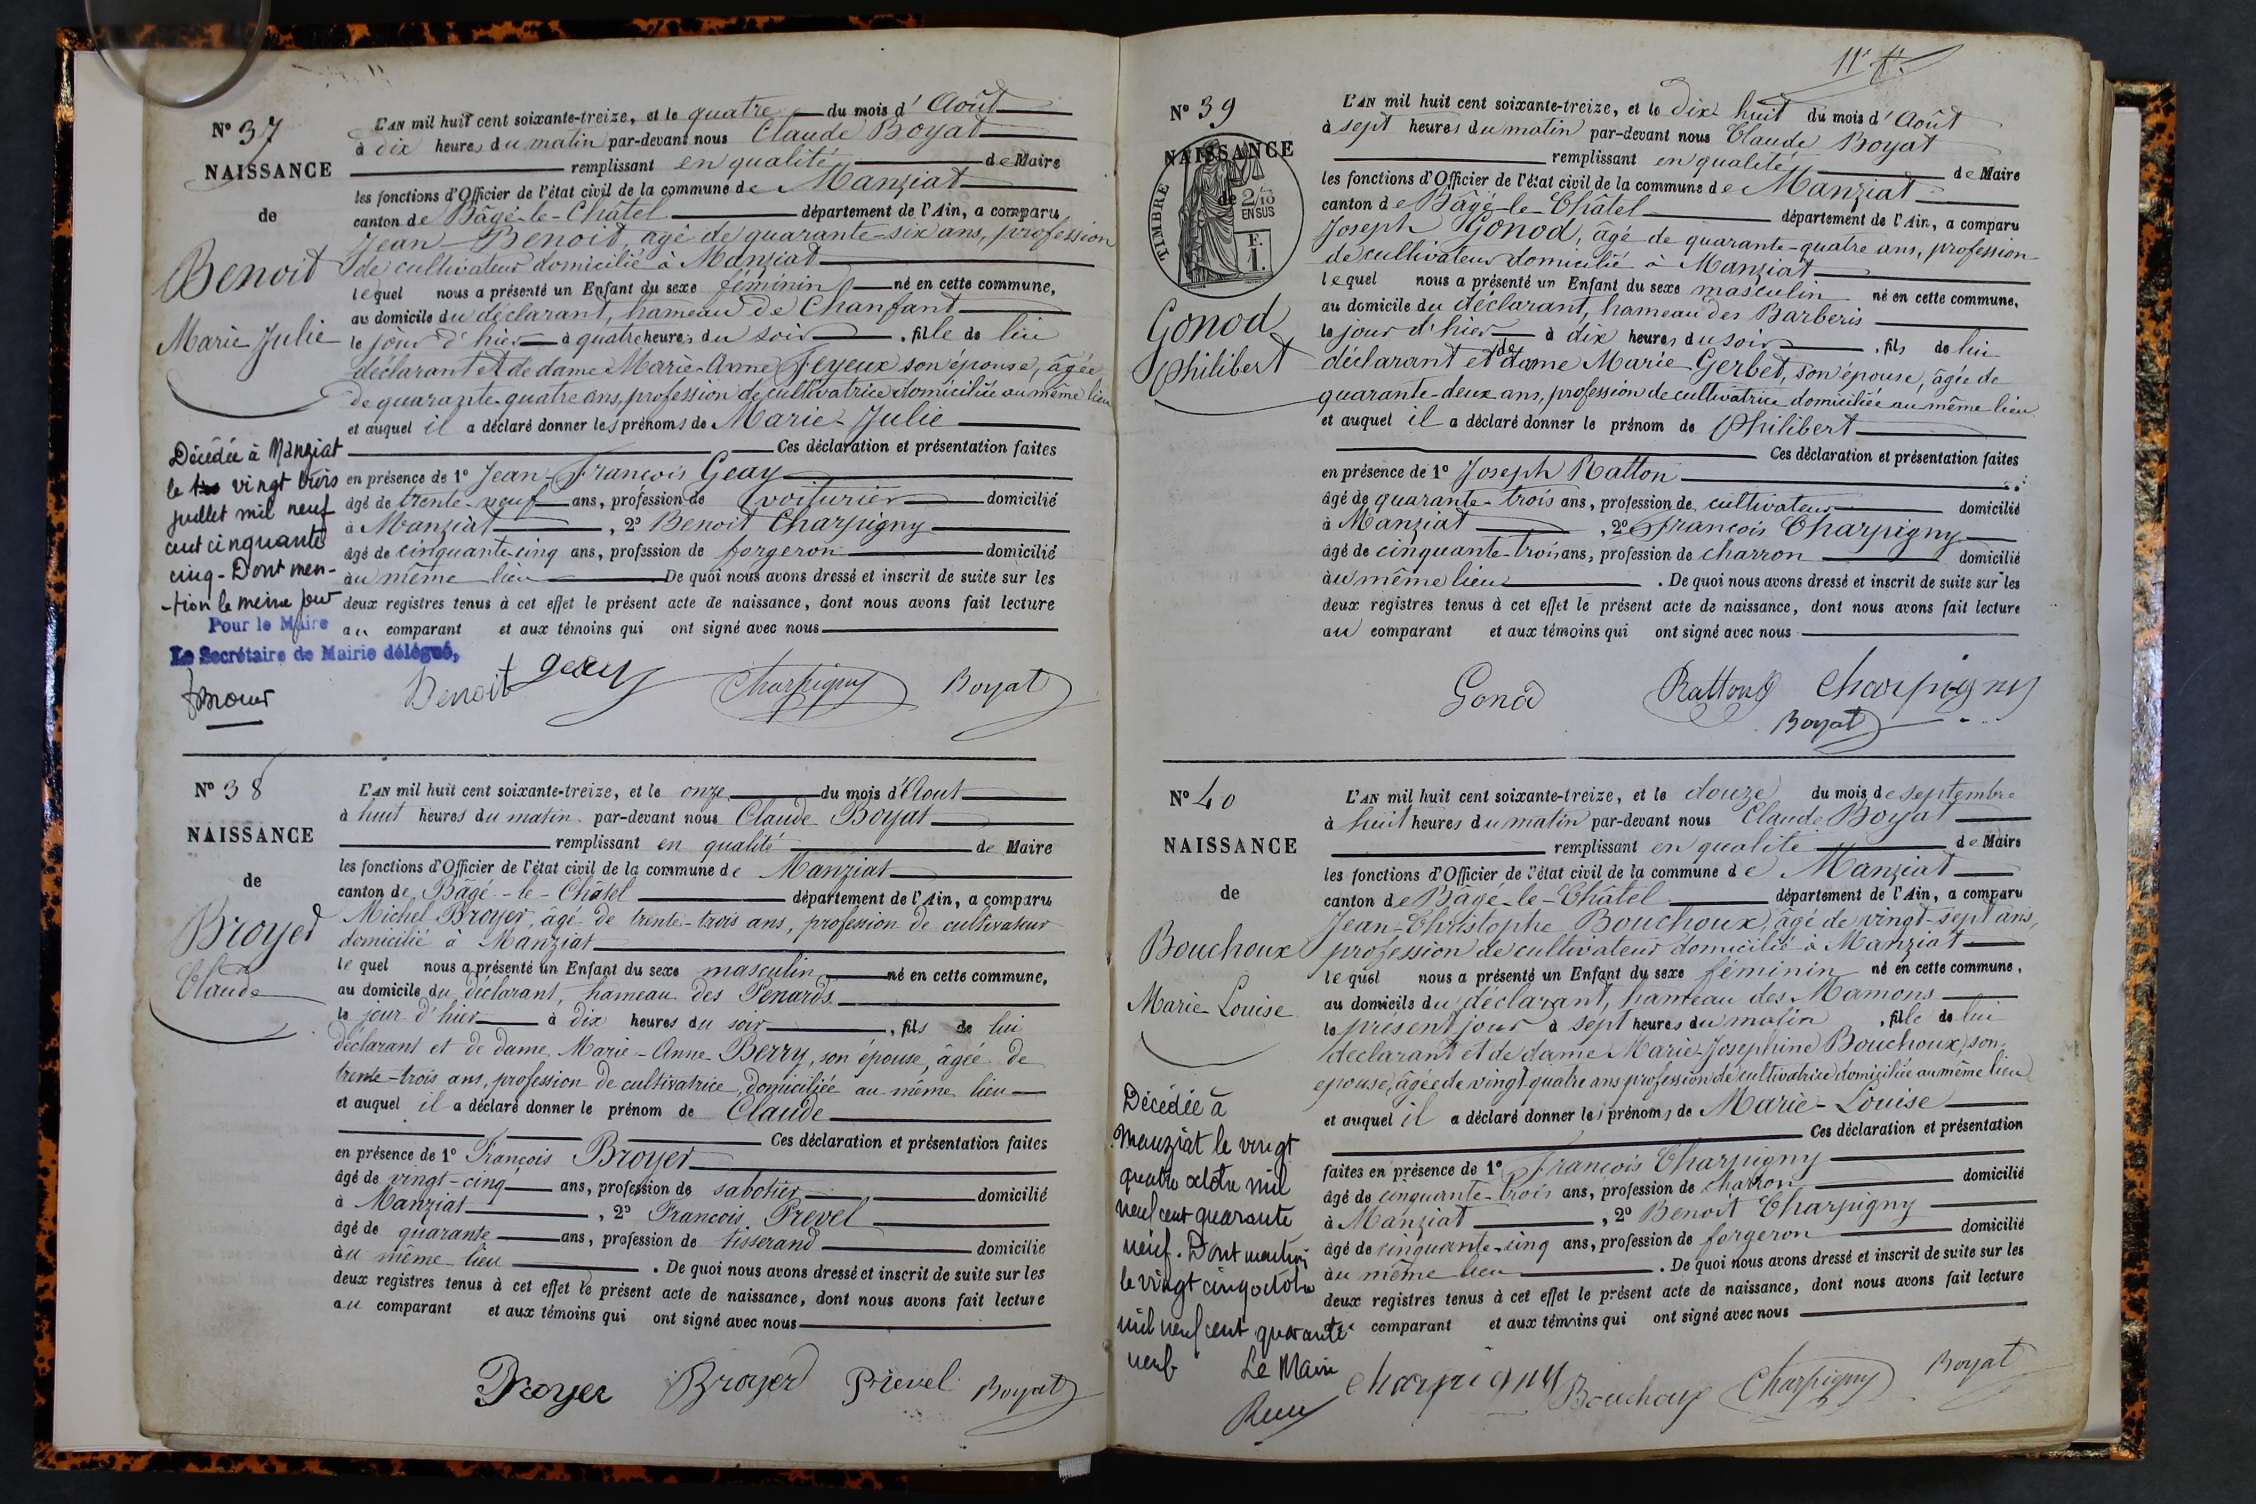 N° 37
NAISSANCE
de
Benoit
Marie Julie
L'AN mil huit cent soixante-treize, et le quatre du mois d'Août
à dix heures du matin par-devant nous Claude Boyat
remplissant en qualité de Maire
les fonctions d'Officier de l'état civil de la commune de Manziat
canton de Bâgé-le-Châtel département de l'Ain, a comparu
Jean Benoit, âgé de quarante-six ans, profession
de cultivateur domicilié à Manziat
lequel nous a présenté un Enfant du sexe féminin né en cette commune,
au domicile du déclarant, hameau de Chanfant
le jour d'hier à quatre heures du soir, fille de lui
déclarant et de dame Marie-Anne Feyeux son épouse, âgée
de quarante-quatre ans, profession de cultivatrice domiciliée au même lieu
et auquel il a déclaré donner les prénoms de Marie-Julie
Ces déclaration et présentation faites
en présence de 1° Jean-François Geay
âgé de trente-neuf ans, profession de voiturier domicilié
à Manziat, 2° Benoit Charpigny
âgé de cinquante-cinq ans, profession de forgeron domicilié
au même lieu. De quoi nous avons dressé et inscrit de suite sur les
deux registres tenus à cet effet le présent acte de naissance, dont nous avons fait lecture
au comparant et aux témoins qui ont signé avec nous
Décédée à Manziat
le vingt trois
juillet mil neuf
cent cinquante
cinq - Dont men-
-tion le même jour
Pour le Maire
Le Secrétaire de Mairie délégué,
Benoit Geay Charpigny Boyat
N° 38
NAISSANCE
de
Broyer
Claude
L'AN mil huit cent soixante-treize, et le onze du mois d'Aout
à huit heures du matin par-devant nous Claude Boyat
remplissant en qualité de Maire
les fonctions d'Officier de l'état civil de la commune de Manziat
canton de Bâgé-le-Châtel département de l'Ain, a comparu
Michel Broyer, âgé de trente-trois ans, profession de cultivateur
domicilié à Manziat
lequel nous a présenté un Enfant du sexe masculin né en cette commune,
au domicile du déclarant, hameau des Penards
le jour d'hier à dix heures du soir, fils de lui
déclarant et de dame Marie-Anne Berry, son épouse, âgée de
trente-trois ans, profession de cultivatrice, domiciliée au même lieu
et auquel il a déclaré donner le prénom de Claude
Ces déclaration et présentation faites
en présence de 1° François Broyer
âgé de vingt-cinq ans, profession de sabotier domicilié
à Manziat, 2° François Prevel
âgé de quarante ans, profession de tisserand domicilié
au même lieu. De quoi nous avons dressé et inscrit de suite sur les
deux registres tenus à cet effet le présent acte de naissance, dont nous avons fait lecture
au comparant et aux témoins qui ont signé avec nous
Broyer Broyer Prevel Boyat
N° 39
NAISSANCE
de
TIMBRE
2/10
EN SUS
F.
1.
Gonod
Philibert
L'AN mil huit cent soixante-treize, et le dix huit du mois d'Août
à sept heures du matin par-devant nous Claude Boyat
remplissant en qualité de Maire
les fonctions d'Officier de l'état civil de la commune de Manziat
canton de Bâgé-le-Châtel département de l'Ain, a comparu
Joseph Gonod, âgé de quarante-quatre ans, profession
de cultivateur domicilié à Manziat
lequel nous a présenté un Enfant du sexe masculin né en cette commune,
au domicile du déclarant, hameau des Barberis
le jour d'hier à dix heures du soir, fils de lui
déclarant et de dame Marie Gerbet, son épouse, âgée de
quarante-deux ans, profession de cultivatrice domiciliée au même lieu
et auquel il a déclaré donner le prénom de Philibert
Ces déclaration et présentation faites
en présence de 1° Joseph Ratton
âgé de quarante-trois ans, profession de cultivateur domicilié
à Manziat, 2° François Charpigny
âgé de cinquante-trois ans, profession de charron domicilié
au même lieu. De quoi nous avons dressé et inscrit de suite sur les
deux registres tenus à cet effet le présent acte de naissance, dont nous avons fait lecture
au comparant et aux témoins qui ont signé avec nous
Gonod Ratton Charpigny
Boyat
N° 40
NAISSANCE
de
Bouchoux
Marie Louise
L'AN mil huit cent soixante-treize, et le douze du mois de septembre
à huit heures du matin par-devant nous Claude Boyat
remplissant en qualité de Maire
les fonctions d'Officier de l'état civil de la commune de Manziat
canton de Bâgé-le-Châtel département de l'Ain, a comparu
Jean-Christophe Bouchoux, âgé de vingt-sept ans,
profession de cultivateur domicilié à Manziat
lequel nous a présenté un Enfant du sexe féminin né en cette commune,
au domicile du déclarant, hameau des Mamons
le présent jour à sept heures du matin, fille de lui
déclarant et de dame Marie-Josephine Bouchoux, son
épouse, âgée de vingt quatre ans profession de cultivatrice domiciliée au même lieu
et auquel il a déclaré donner les prénoms de Marie-Louise
Ces déclaration et présentation
faites en présence de 1° François Charpigny
âgé de cinquante-trois ans, profession de charron domicilié
à Manziat, 2° Benoit Charpigny
âgé de cinquante-cinq ans, profession de forgeron domicilié
au même lieu. De quoi nous avons dressé et inscrit de suite sur les
deux registres tenus à cet effet le présent acte de naissance, dont nous avons fait lecture
comparant et aux témoins qui ont signé avec nous
Décédée à
Manziat le vingt
quatre octobre mil
neuf cent quarante
neuf. Dont mention
le vingt cinq octobre
mil neuf cent quarante
neuf Le Maire
Charpigny Bouchoux Charpigny Boyat